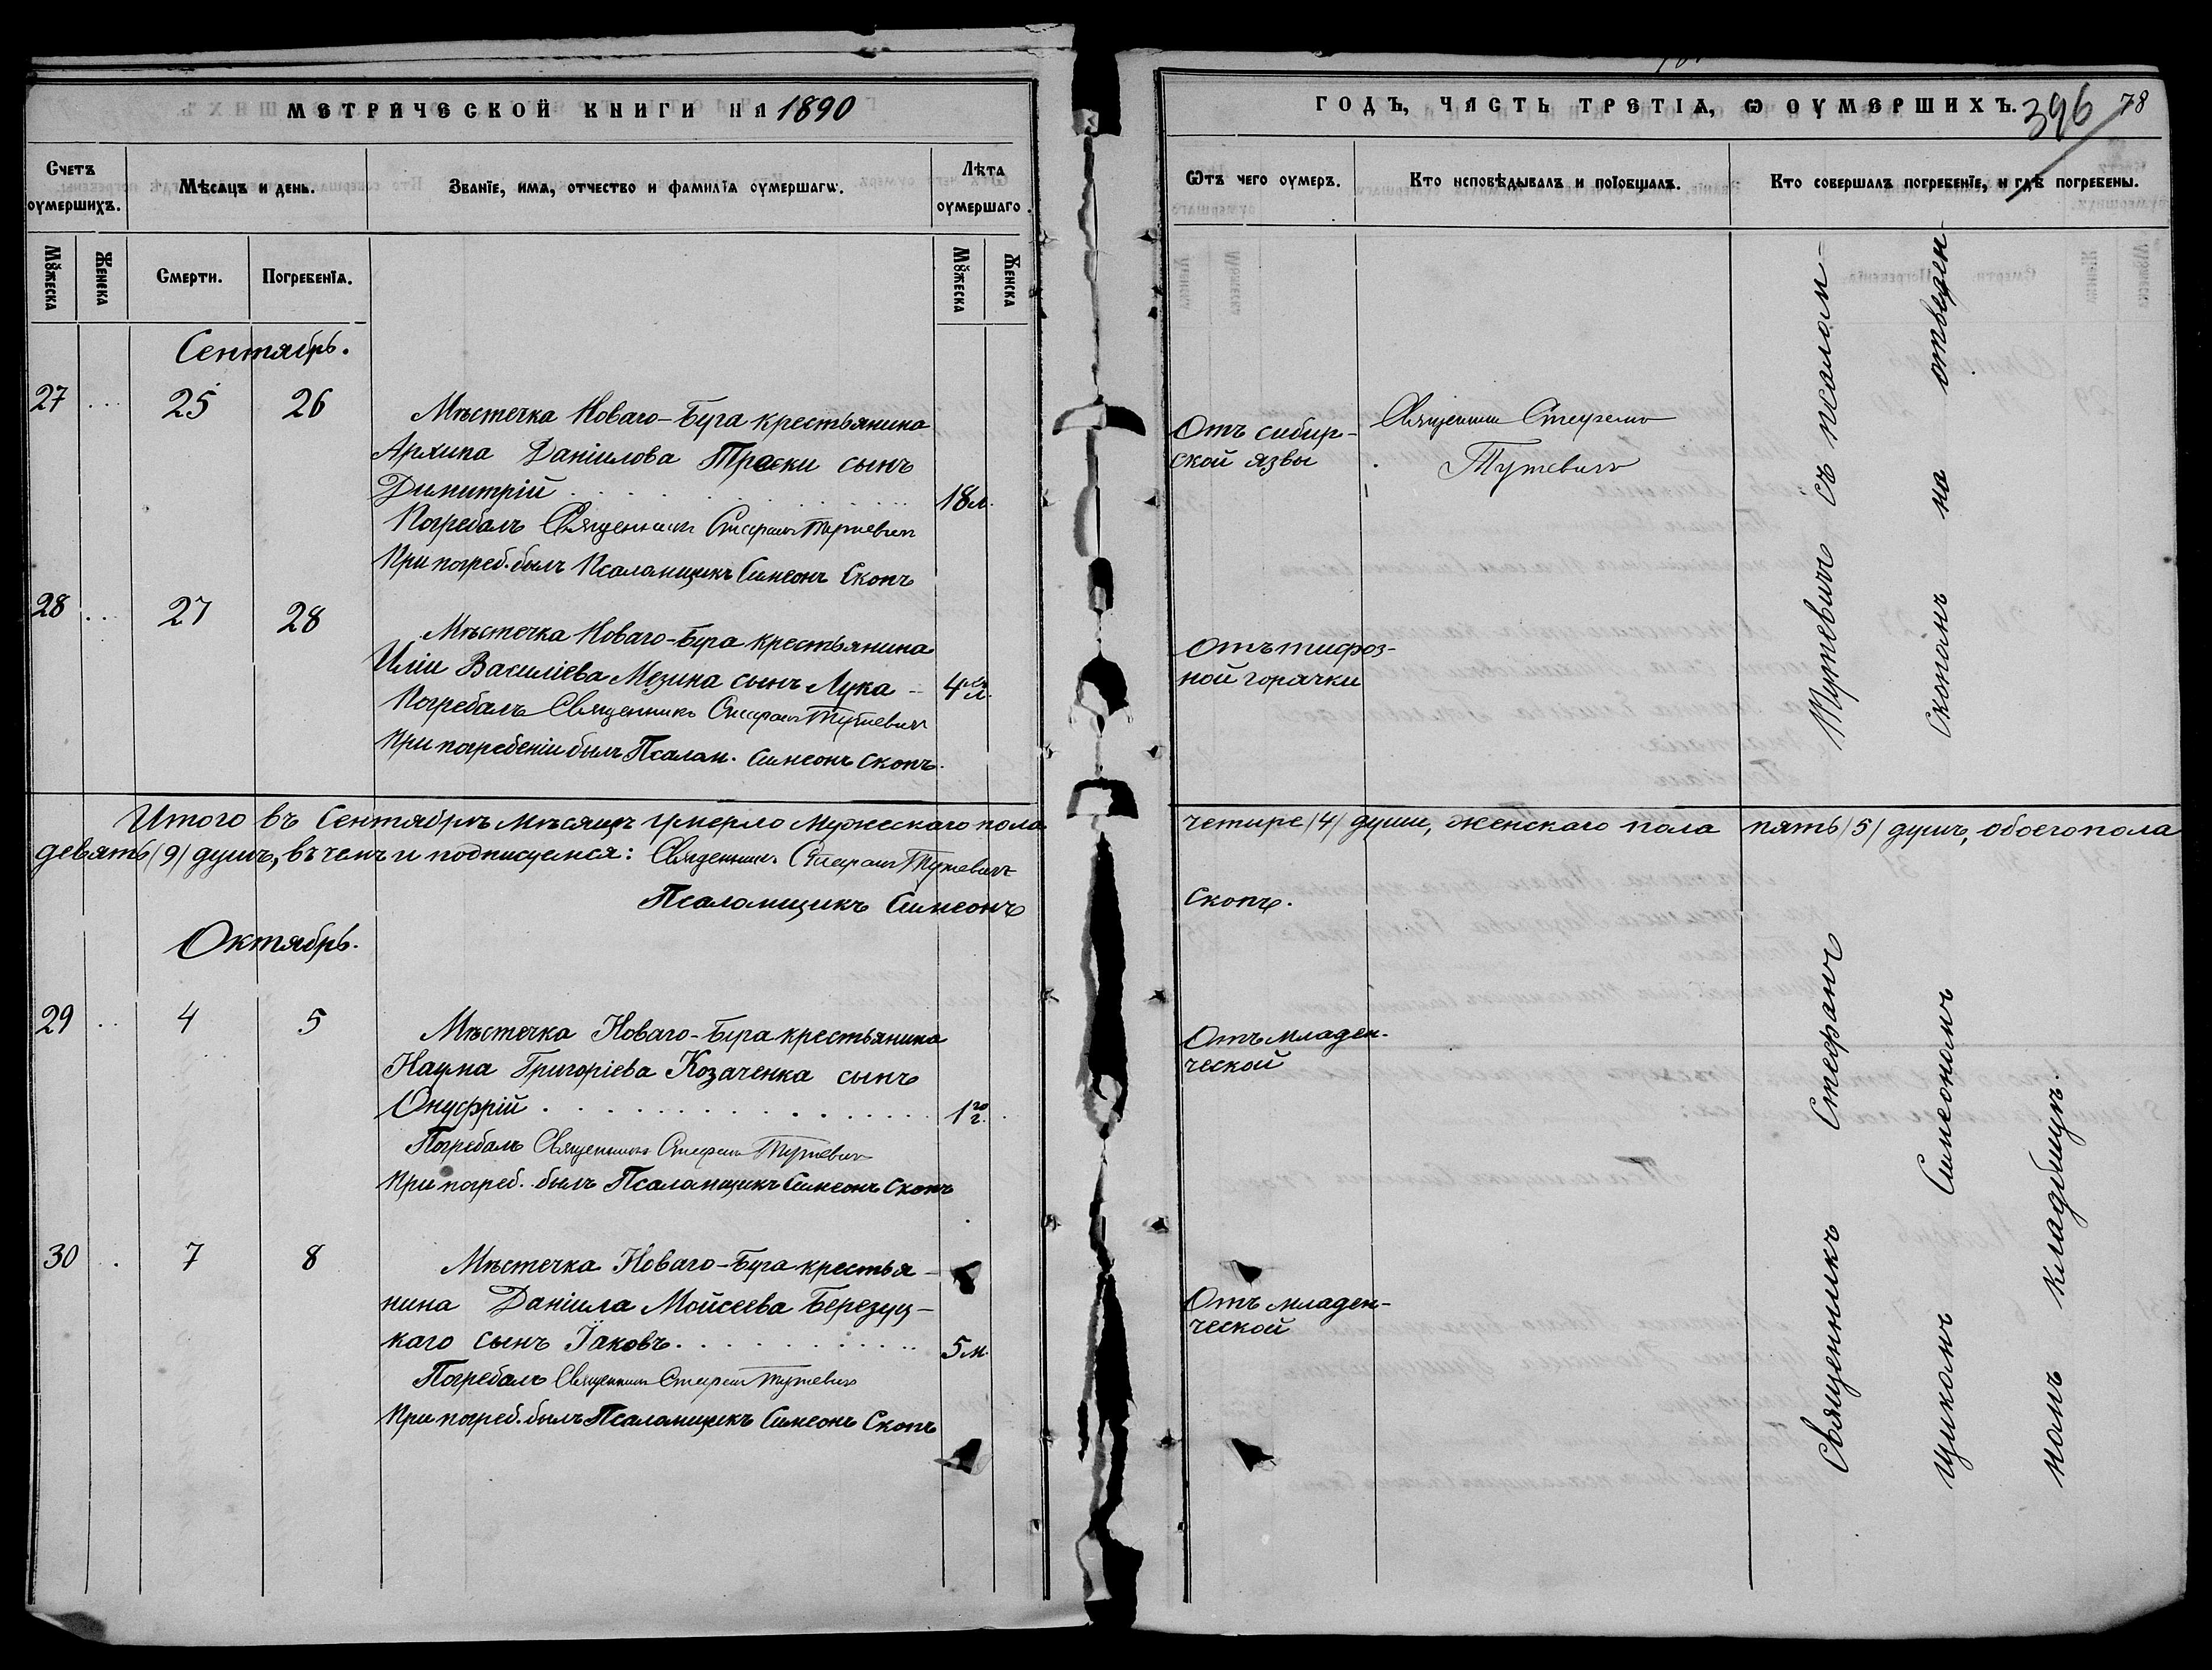 МЕТРИЧЕСКОЙ КНИГИ НА 1890
Счетъ оумершихъ.
Мѣсяцъ и день.
Званїе, имя, отчество и фамилїя оумершагѡ.
Лѣта оумершаго
Мꙋжеска
Женска
Смерти.
Погребенїя.
Мꙋжеска
Женска
Сентябрь.
27 ... 25 26
Мѣстечка Новаго-Буга крестьянина
Архипа Даніилова Траски сынъ
Димитрій 18 л.
Погребалъ Священникъ Стефанъ Тутевичъ
При погреб. былъ Псаломщикъ Симеонъ Скопъ
28 ... 27 28
Мѣстечка Новаго-Буга крестьянина
Иліи Василіева Мезина сынъ Лука 4 л.
Погребалъ Священникъ Стефанъ Тутевичъ
При погребеніи былъ Псалом. Симеонъ Скопъ.
Итого въ Сентябрѣ мѣсяцѣ умерло мужескаго пола
девять (9) душъ, въ чемъ и подписуемся: Священникъ Стефанъ Тутевичъ
Псаломщикъ Симеонъ
Октябрь.
29 .. 4 5
Мѣстечка Новаго-Буга крестьянина
Наума Григоріева Козаченка сынъ
Онуфрій 1 г.
Погребалъ Священникъ Стефанъ Тутевичъ
При погреб. былъ Псаломщикъ Симеонъ Скопъ
30 . 7 8
Мѣстечка Новаго-Буга крестья-
нина Даніила Мойсеева Березуц-
каго сынъ Іаковъ 5 м.
Погребалъ Священникъ Стефанъ Тутевичъ
При погреб. былъ Псаломщикъ Симеонъ Скопъ
ГОДЪ, ЧАСТЬ ТРЕТІЯ, Ѡ ОУМЕРШИХЪ. 396 78
Ѿтъ чего оумеръ.
Кто исповѣдывалъ и поїобщалъ.
Кто совершалъ погребенїе, и гдѣ погребены.
Отъ сибир-
ской язвы
Священникъ Стефанъ
Тутевичъ
Отъ тифоз-
ной горячки
четыре (4) души, женскаго пола пять (5) душъ, обоего пола
Скопъ.
Отъ младен-
ческой
Отъ младен-
ческой
Священникъ Стефанъ Тутевичъ съ псалом-
щикомъ Симеономъ Скопомъ на отведен-
номъ кладбищѣ.